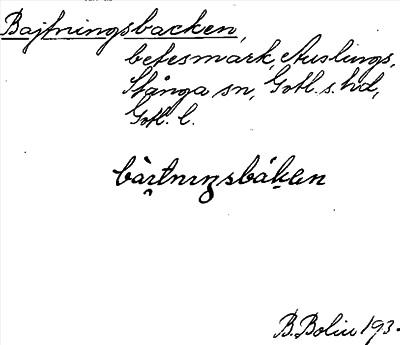 Bajtningsbacken,
betesmark, Auslings,
Stånga sn, Gotl. s. hd,
Gotl. l.
bàịtnıŋsbáken
B. Bolin 193-